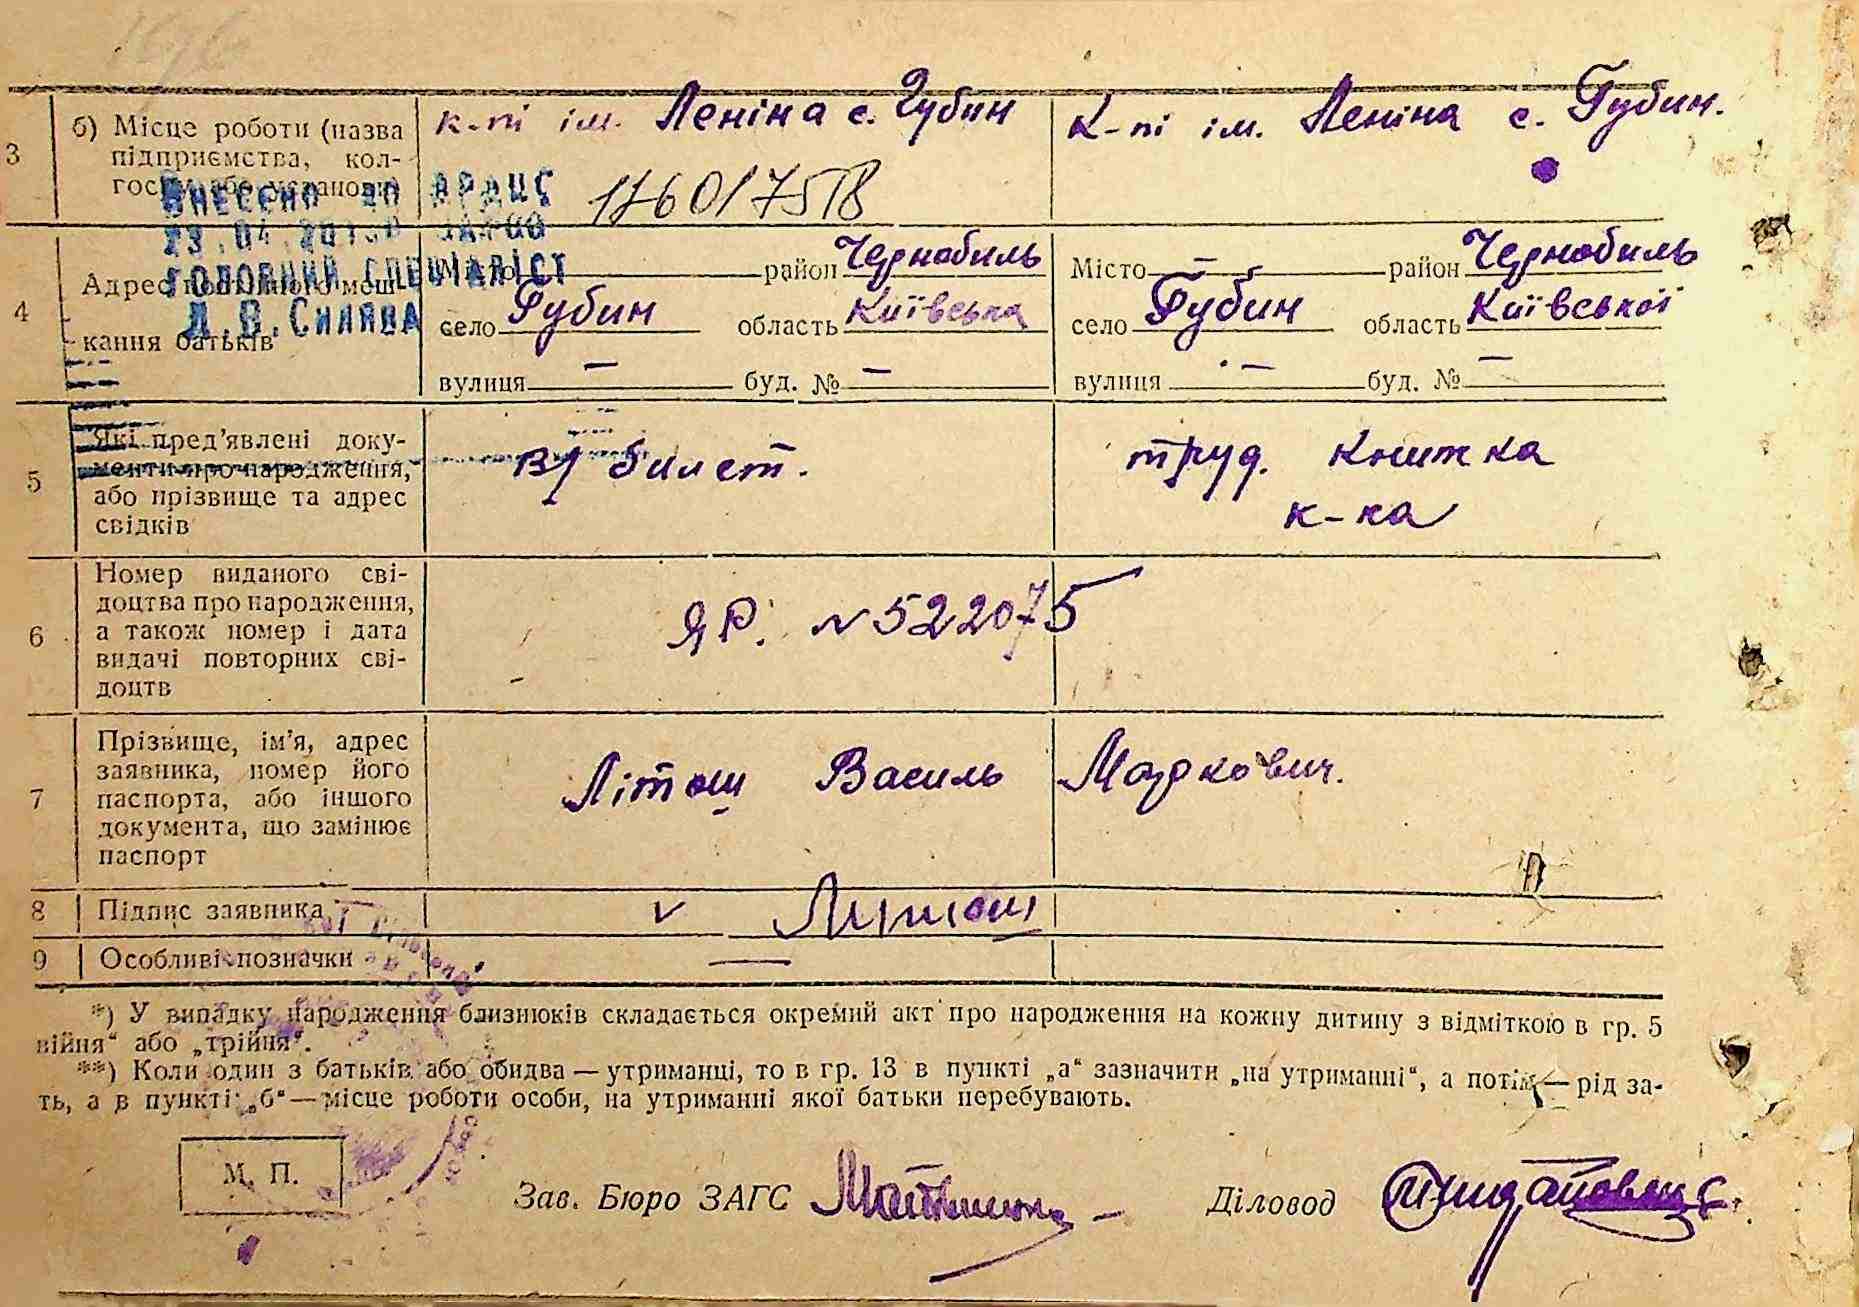 3 б) Місце роботи (назва підприємства, колгоспу або установи)
к-пі ім. Леніна с. Губин
К-пі ім. Леніна с. Губин.
ВНЕСЕНО ДО ДРАЦС
23.04.
ГОЛОВНИЙ СПЕЦІАЛІСТ
176017518
4 Адрес
кання батьків
Місто район Чернобиль
село Губин область Київська
вулиця — буд. № —
Місто — район Чернобиль
село Губин область Київської
вулиця — буд. № —
5 Які пред'явлені документи про народження, або прізвище та адрес свідків
в/билет.
труд. книжка
к-ка
6 Номер виданого свідоцтва про народження, а також номер і дата видачі повторних свідоцтв
ЯР. № 522075
7 Прізвище, ім'я, адрес заявника, номер його паспорта, або іншого документа, що замінює паспорт
Літош Василь Маркович.
8 Підпис заявника
v Литош
9 Особливі позначки —
*) У випадку народження близнюків складається окремий акт про народження на кожну дитину з відміткою в гр. 5
війня“ або „трійня“.
**) Коли один з батьків або обидва — утриманці, то в гр. 13 в пункті „а“ зазначити „на утриманні“, а потім — рід за-
ть, а в пункті „б“ — місце роботи особи, на утриманні якої батьки перебувають.
М. П.
Зав. Бюро ЗАГС
Діловод